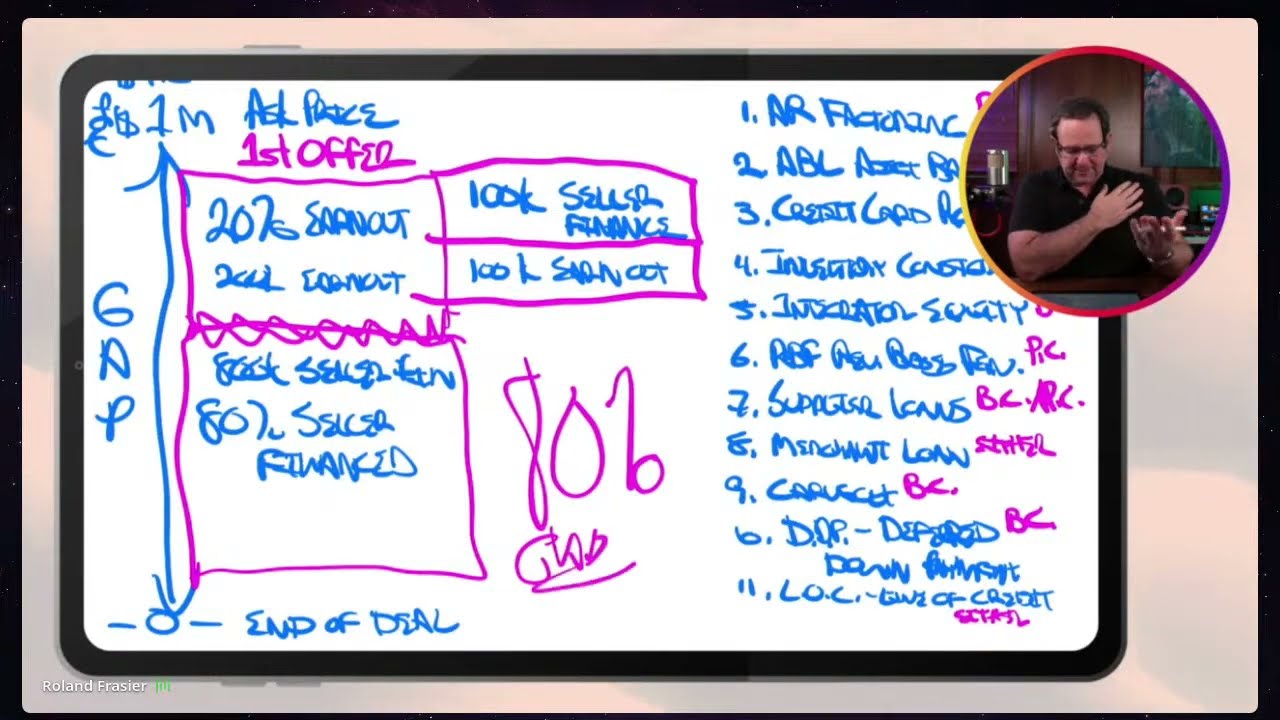 1M ASK PRICE
1st OFFER
GAP
20% EARNOUT
200k EARNOUT
100k SELLER
FINANCE
100k EARNOUT
800k SELLER FIN
80% SELLER
FINANCED
80%
- 0 - END OF DEAL
1. AR FACTORING
2. ABL ASSET BA
3. CREDIT CARD
4. INVENTORY
5. INTEGRATOR EQUITY
6. RBF REV BASED FIN. P.C.
7. SUPPLIER LOANS B.C./P.C.
8. MERCHANT LOAN EITHER
9. B.C.
D.D.P. - DEFERRED B.C.
DOWN PAYMENT
11. L.O.C. - LINE OF CREDIT
EITHER
Roland Frasier